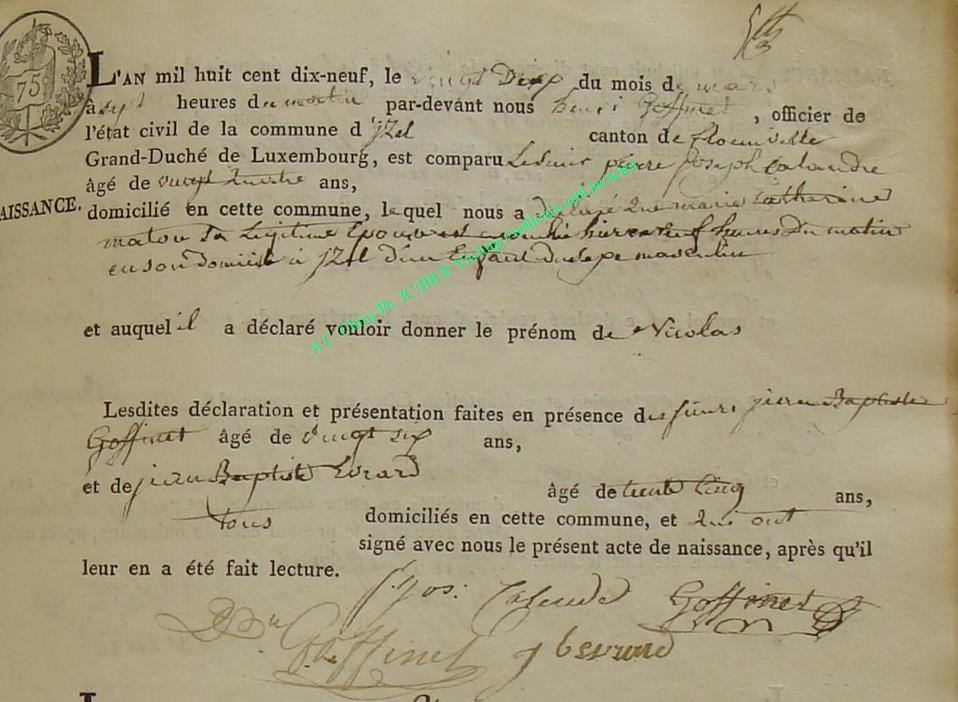 75
L'AN mil huit cent dix-neuf, le vingt Deux du mois de mars
à sept heures du matin par-devant nous henri Goffinet, officier de
l'état civil de la commune d'jzel canton de florenville
Grand-Duché de Luxembourg, est comparu Le Sieur pierre joseph Calandre
âgé de vingt quatre ans,
NAISSANCE.
domicilié en cette commune, lequel nous a déclaré que marie Catherine
maton Sa Legitime Epouse est accouchée hier a neuf heures Du matin
en son domicile à jzel d'un Enfant du sexe masculin
et auquel il a déclaré vouloir donner le prénom de Nicolas
Lesdites déclaration et présentation faites en présence des sieurs jean Baptiste
Goffinet âgé de vingt six ans,
et de jean Baptiste Evrard
âgé de trente Cinq ans,
tous domiciliés en cette commune, et qui ont
signé avec nous le présent acte de naissance, après qu'il
leur en a été fait lecture.
Goffinet
Goffinet